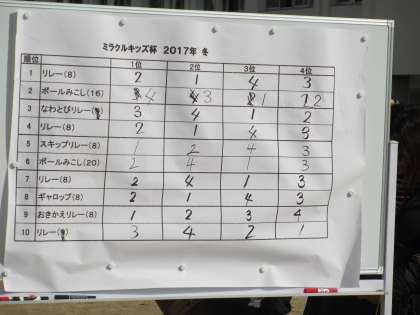 ミラクルキッズ杯 2017年 冬
順位 1位 2位 3位 4位
1 リレー(8) 2 1 4 3
2 ボールみこし(16) 4 3 1 2
3 なわとびリレー 3 4 1 2
4 リレー(8) 2 1 4 3
5 スキップリレー(8) 1 2 4 3
6 ボールみこし(20) 2 4 1 3
7 リレー(8) 2 4 1 3
8 ギャロップ(8) 2 1 4 3
9 おきかえリレー(8) 1 2 3 4
10 リレー 3 4 2 1